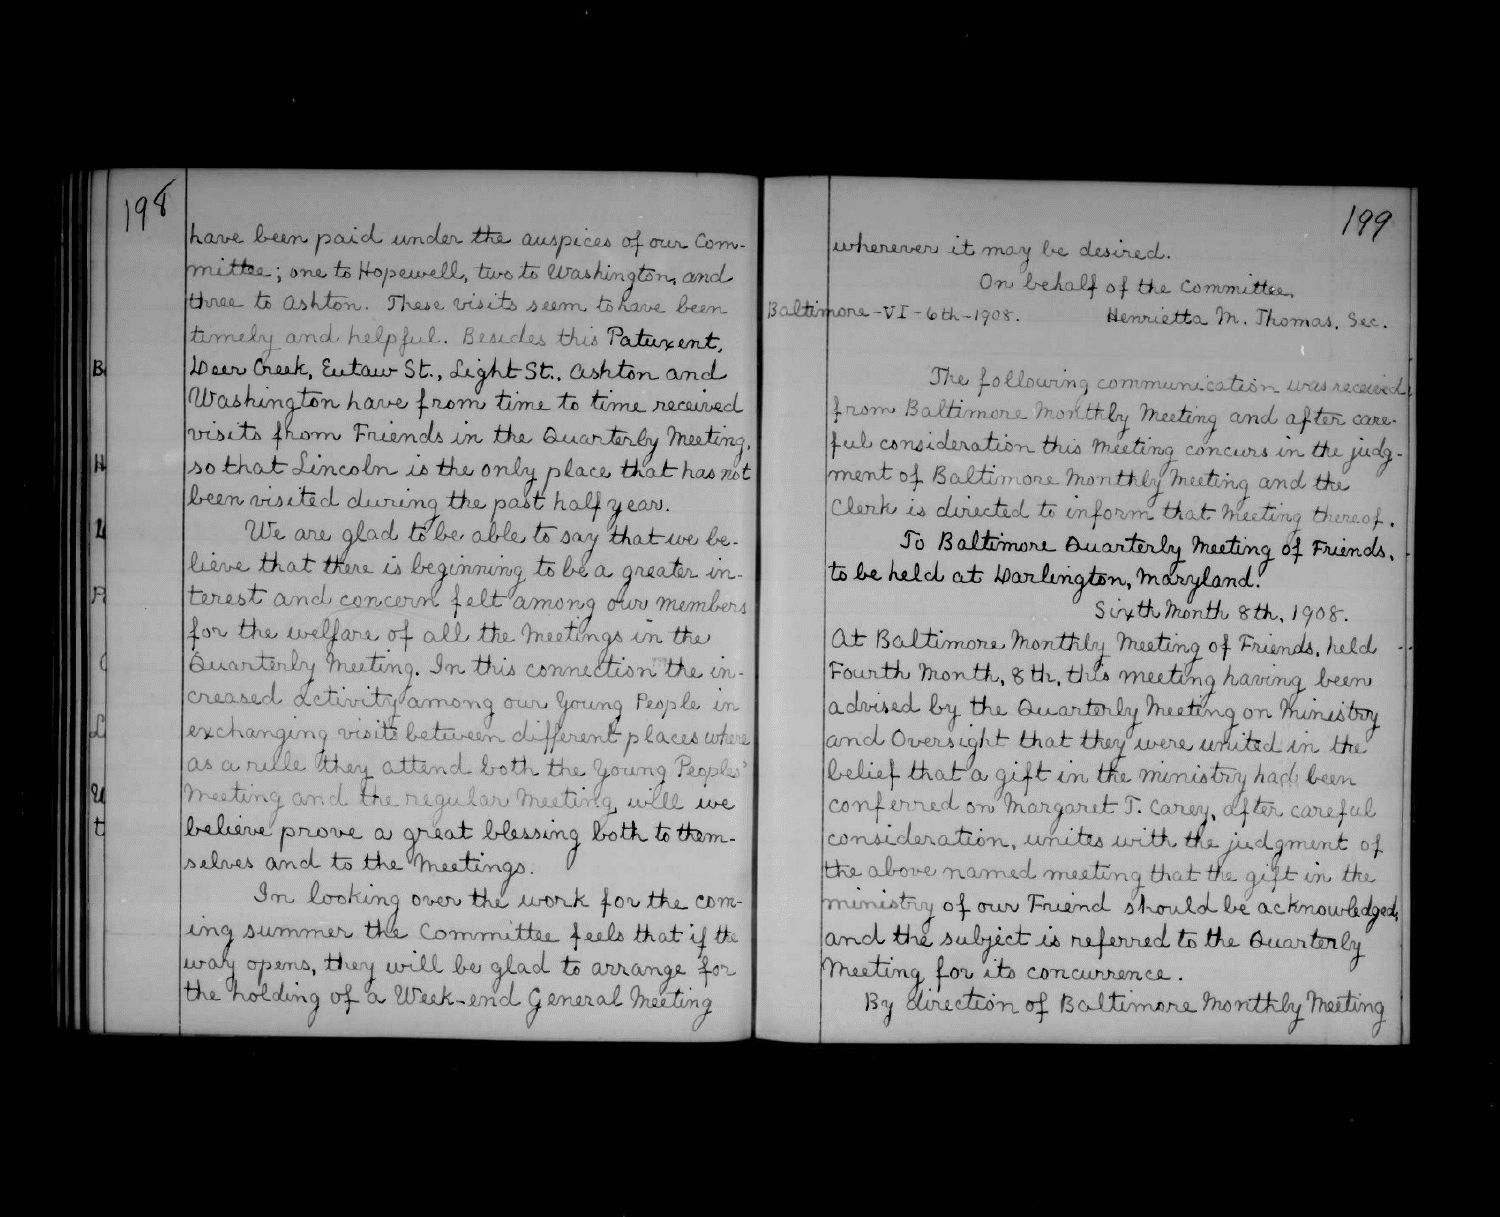 198
have been paid under the auspices of our Com-
mittee; one to Hopewell, two to Washington, and
three to Ashton. These visits seem to have been
timely and helpful. Besides this Patuxent,
Deer Creek, Eutaw St., Light St., Ashton and
Washington have from time to time received
visits from Friends in the Quarterly Meeting,
so that Lincoln is the only place that has not
been visited during the past half year.
We are glad to be able to say that we be-
lieve that there is beginning to be a greater in-
terest and concern felt among our members
for the welfare of all the Meetings in the
Quarterly Meeting. In this connection the in-
creased activity among our Young People in
exchanging visits between different places where
as a rule they attend both the Young Peoples'
Meeting and the regular Meeting, will we
believe prove a great blessing both to them-
selves and to the Meetings.
In looking over the work for the com-
ing summer the Committee feels that if the
way opens, they will be glad to arrange for
the holding of a Week-end General Meeting
199
wherever it may be desired.
On behalf of the Committee,
Baltimore-VI-6th-1908. Henrietta M. Thomas, Sec.
The following communication was received
from Baltimore Monthly Meeting and after care-
ful consideration this Meeting concurs in the judg-
ment of Baltimore Monthly Meeting and the
Clerk is directed to inform that Meeting thereof.
To Baltimore Quarterly Meeting of Friends,
to be held at Darlington, Maryland.
Sixth Month 8th, 1908.
At Baltimore Monthly Meeting of Friends, held
Fourth Month, 8th, this meeting having been
advised by the Quarterly Meeting on Ministry
and Oversight that they were united in the
belief that a gift in the ministry had been
conferred on Margaret T. Carey, after careful
consideration, unites with the judgment of
the above named meeting that the gift in the
ministry of our Friend should be acknowledged,
and the subject is referred to the Quarterly
Meeting for its concurrence.
By direction of Baltimore Monthly Meeting